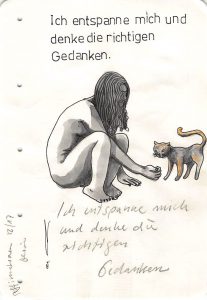 Ich entspanne mich und
denke die richtigen
Gedanken.
Ich entspanne mich
und denke die
richtigen
Gedanken
12/17